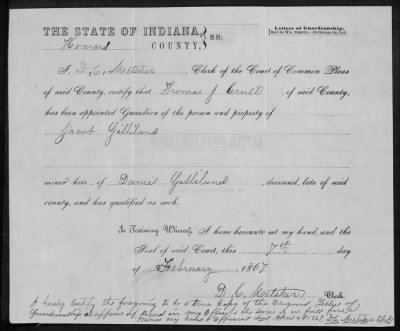 THE STATE OF INDIANA,
Howard COUNTY, } SS:
Letters of Guardianship.
I, D. C. Metsker, Clerk of the Court of Common Pleas
of said County, certify that Thomas J , of said County,
has been appointed Guardian of the person and property of
Jacob Gilliland
minor heir of Daniel Gilliland , deceased, late of said
county, and has qualified as such.
In Testimony Whereof, I have hereunto set my hand, and the
Seal of said Court, this 7th day
of February 1867
D. C. Metsker Clerk.
I hereby Certify the foregoing to be a true Copy of the Original Letters of
Guardianship as appears of Record in my office & the same is in full force
Witness my hand & official Seal 1867 D. C. Metsker Clerk